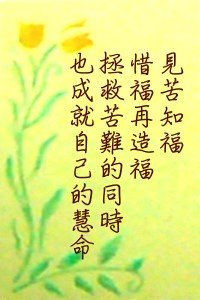 見苦知福
惜福再造福
拯救苦難的同時
也成就自己的慧命